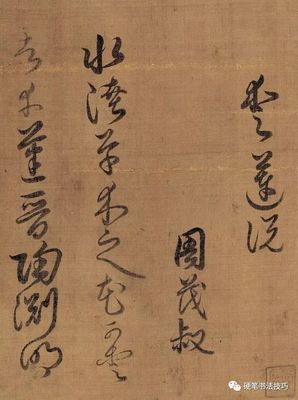 愛蓮説
周茂叔
水草木之花可愛
者甚晉陶淵明
硬笔书法技巧